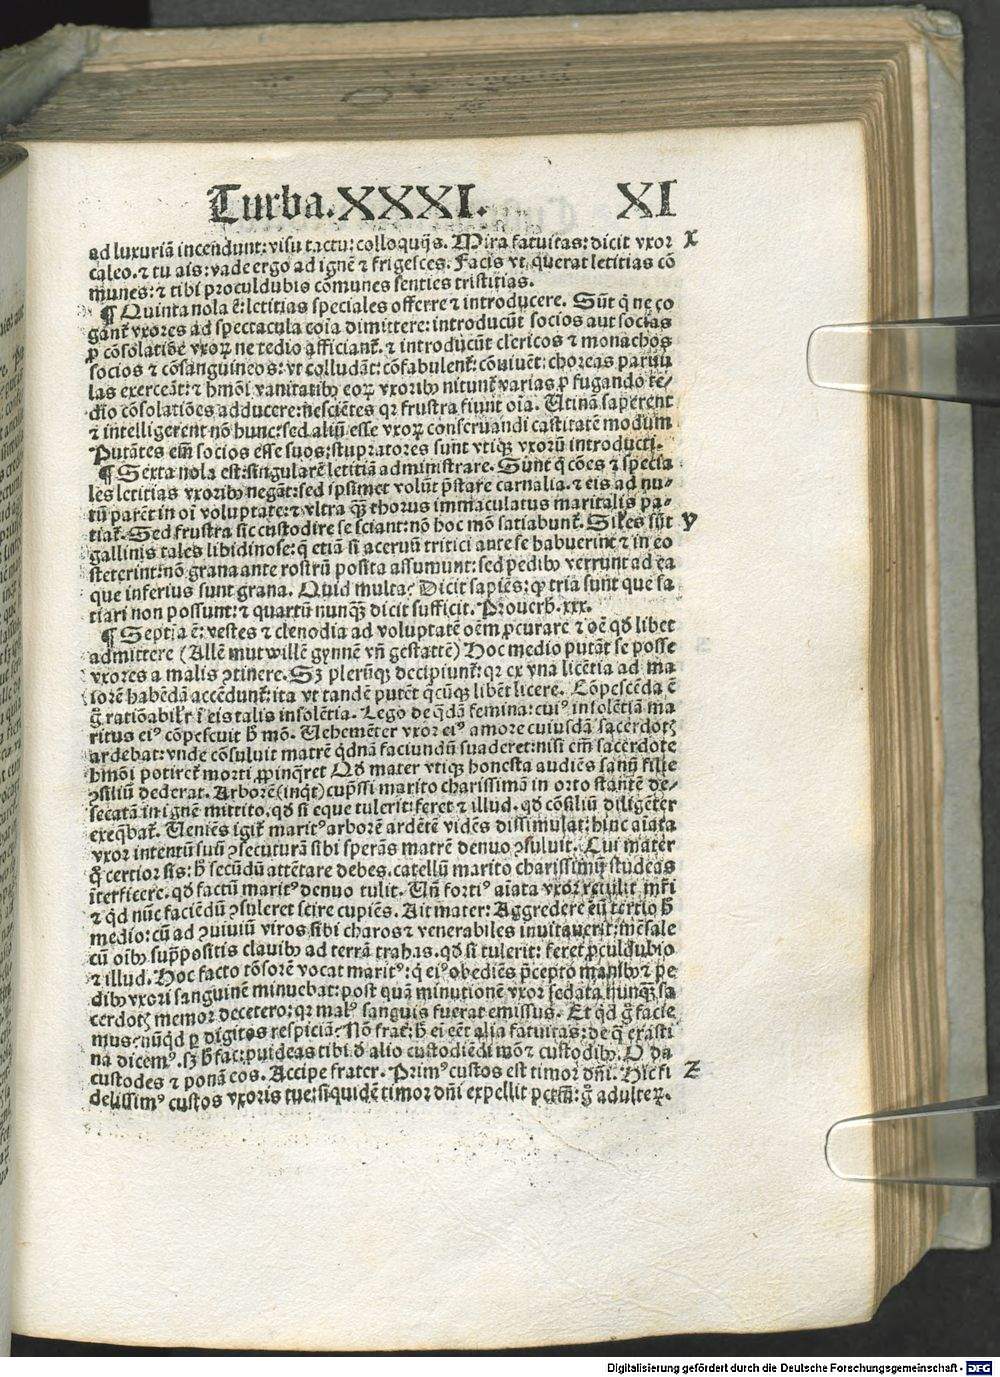 Turba.XXXI. XI
ad luxuriā incendunt: visu tactu: colloquijs. Mira fatuitas: dicit vxor X
caleo. ⁊ tu ais: vade ergo ad ignē ⁊ frigesces. Facis vt querat letitias cō
munes: ⁊ tibi proculdubis cōmunes senties tristitias.
¶ Quinta nola ē: letitias speciales offerre ⁊ introducere. Sūt q̄ ne co
gant᷑ vxores ad spectacula coīa dimittere: introducūt socios aut socias
ꝓ cōsolatiōe vxoꝝ ne tedio afficiant᷑. ⁊ introducūt clericos ⁊ monachos
socios ⁊ cōsanguineos: vt colludāt: cōfabulent᷑: cōviuēt: choreas paruu
las exerceāt: ⁊ hmōi vanitatibꝰ eoꝝ vxoribꝰ nitunt᷑ varias ꝓ fugando te/
dio cōsolatiōes adducere: nesciētes qꝛ frustra fiunt oīa. Utinā saperent
⁊ intelligerent nō hunc: sed aliū esse vxoꝝ conseruandi castitatē modum
Putātes em̄ socios esse suos: stupratores sunt vtiqꝫ vxorū introducti.
¶ Sexta nola est: singularē letitiā administrare. Sunt q̄ cōes ⁊ specia
les letitias vxoribꝰ negāt: sed ipsimet volūt p̄stare carnalia. ⁊ eis ad nu-
tū parēt in oī voluptate: ⁊ vltra qꝫ thorus immaculatus maritalis pa-
tiat᷑. Sed frustra sic custodire se sciant: nō hoc mō satiabunt᷑. Siles sūt y
gallinis tales libidinose: q̄ etiā si aceruū tritici ante se habuerint ⁊ in eo
steterint: nō grana ante rostrū posita assumunt: sed pedibꝰ verrunt ad ea
que inferius sunt grana. Quid multa? Dicit sapiēs: ꝙ tria sunt que sa
tiari non possunt: ⁊ quartū nunqꝫ dicit sufficit. Prouerb̄. xxx.
¶ Septīa ē: vestes ⁊ clenodia ad voluptatē oēm ꝓcurare ⁊ oē qd̄ libet
admittere (Allē mutwillē gynnē vn̄ gestattē) Hoc medio putāt se posse
vxores a malis ꝯtinere. Sꝫ plerūqꝫ decipiunt᷑: qꝛ ex vna licētia ad ma
iorē habēdā accēdunt᷑: ita vt tandē putēt q̄cūqꝫ libēt licere. Cōpescēda ē
g̊ ratiōabilr̄ ī eis talis insolētia. Lego de q̄dā femina: cuiꝰ insolētiā ma
ritus eiꝰ cōpescuit h̄ mō. Uehemēter vxor eiꝰ amore cuiusdā sacerdotꝭ
ardebat: vnde cōsuluit matrē qd̄nā faciundū suaderet: nisi em̄ sacerdote
hmōi potiret᷑ morti ꝓpinq̄ret Qd̄ mater vtiqꝫ honesta audiēs sanū filie
ꝯsiliū dederat. Arborē (inq̄t) cup̄ssi marito charissimā in orto stantē de-
secatā in ignē mittito. qd̄ si eque tulerit: feret ⁊ illud. qd̄ cōsiliū diligēter
exeq̄bat᷑. Ueniēs igit᷑ maritꝰ arborē ardētē vidēs dissimulat: hinc aīata
vxor intentū suū ꝯsecuturā sibi sperās matrē denuo ꝯsuluit. Cui mater
q̊ certior sis: h̄ secūdū attētare debes. catellū marito charissimū studeas
īterficere. qd̄ factū maritꝰ denuo tulit. Un̄ fortiꝰ aīata vxor retulit mr̄i
⁊ qd̄ nūc faciēdū ꝯsuleret scire cupiēs. Ait mater: Aggredere eū tertio h̄
medio: cū ad ꝯuiuiū viros sibi charos ⁊ venerabiles inuitauerit: mēsale
cū oībꝰ sup̄positis clauibꝰ ad terrā trahas. qd̄ si tulerit: feret ꝓculdubio
⁊ illud. Hoc facto tōsorē vocat maritꝰ: q̄ eiꝰ obediēs p̄cepto manibꝰ ⁊ pe
dibꝰ vxori sanguinē minuebat: post quā minutionē vxor sedata nunqꝫ sa
cerdotꝭ memor decetero: qꝛ malꝰ sanguis fuerat emissus. Et qd̄ g̊ facie
mus? nūqd̄ ꝑ digitos respiciā? Nō frat᷑: h̄ ei eēt alia fatuitas: de q̄ crasti
na dicemꝰ. sꝫ h̄ fac: ꝓuideas tibi d̄ alio custodiēdi mō ⁊ custodibꝰ. O da
custodes ⁊ ponā eos. Accipe frater. Primꝰ custos est timor dn̄i. Hic fi Z
delissimꝰ custos vxoris tue: siquidē timor dn̄i expellit pctm̄: g̊ adulteꝝ.
Digitalisierung gefördert durch die Deutsche Forschungsgemeinschaft - DFG